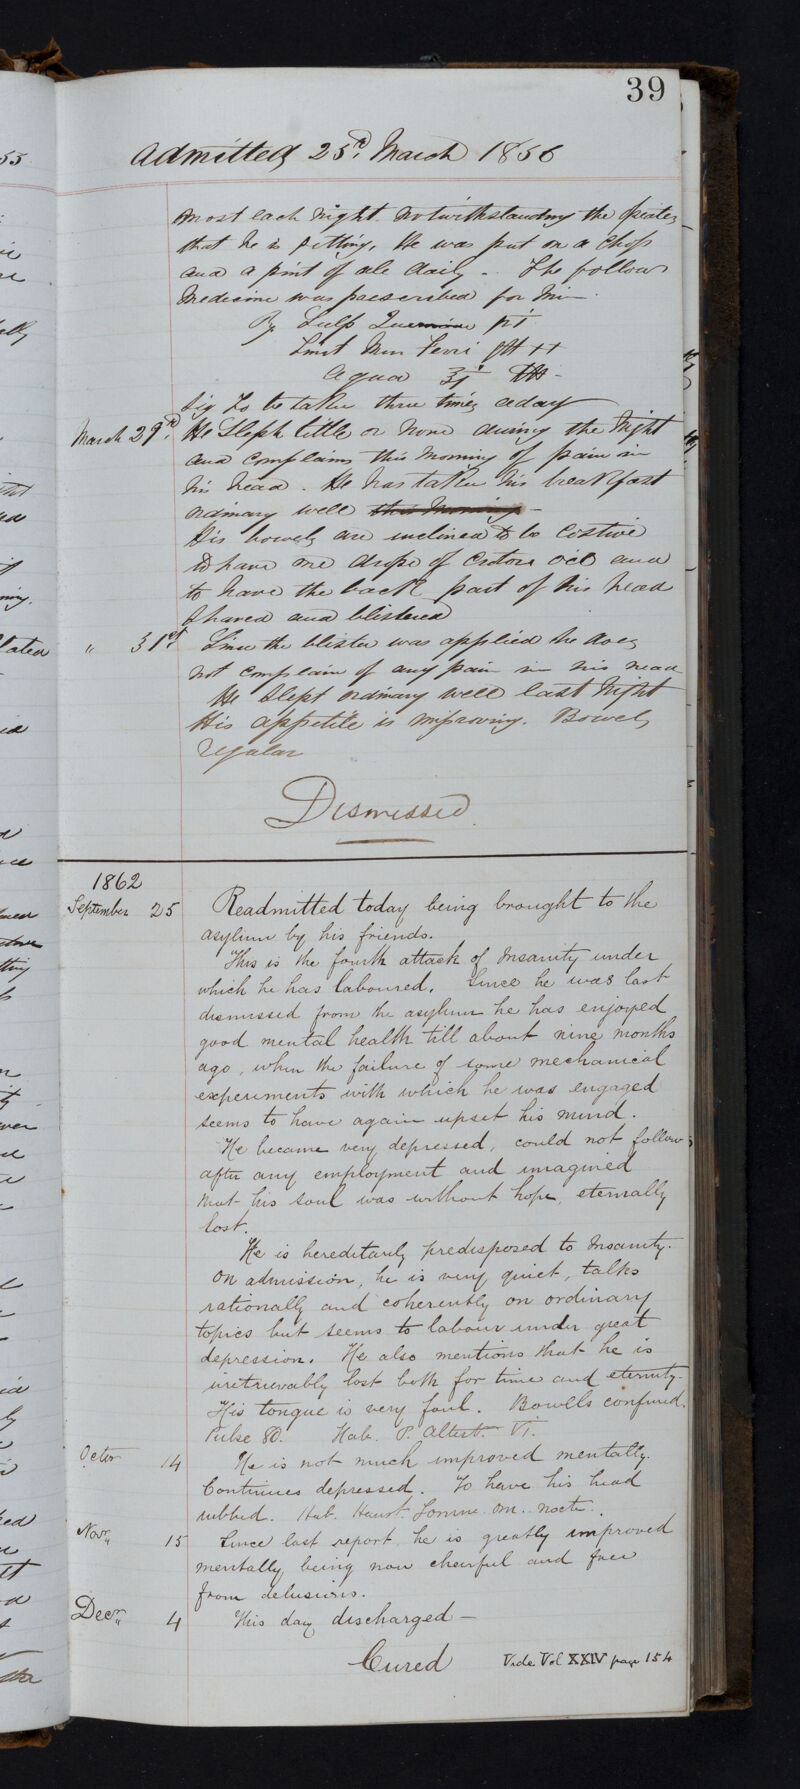 39
Admitted 25d. March 1856
most each night notwithstanding the opiates
that he is getting. He was put on a chop
and a pint of ale daily - The follow
medicine was prescribed for him -
Rx Sulp Quinine
Tinct Mur Ferri
Aqua
Sig To be taken three times a day
March 29d. He Sleph little or none during the Night
and complains this morning of pain in
his head. He has taken his breakfast
ordinary well this morning -
His bowels are inclined to be Costive
to have one drop of Croton oil and
to have the back part of his head
Shaved and blistered
" 31st Since the blister was applied he does
not complain of any pain in his head
He Slept ordinary well last Night
His appetite is improving. Bowels
regular
Dismissed
1862
September 25 Readmitted today being brought to the
asylum by his friends.
This is the fourth attack of Insanity under
which he has laboured. Since he was last
dismissed from the asylum he has enjoyed
good mental health till about nine months
ago, when the failure of some mechanical
experiments with which he was engaged
seems to have again upset his mind.
He became very depressed, could not follow
after any employment and imagined
that his soul was without hope, eternally
lost.
He is hereditarily predisposed to Insanity.
On admission, he is very quiet, talks
rationally and coherently on ordinary
topics but seems to labour under great
depression. He also mentions that he is
irretrievably lost both for time and eternity.
His tongue is very foul. Bowells confined.
Pulse 80. Hab. P. Altert. VI.
Octer 14 He is not much improved mentally.
Continues depressed. To have his head
rubbed. Hab. Haust. Somn. om. nocte.
Novr. 15 Since last report, he is greatly improved
mentally being now cheerful and free
from delusions.
Decr. 4 This day discharged -
Cured Vide Vol XXIV page 154